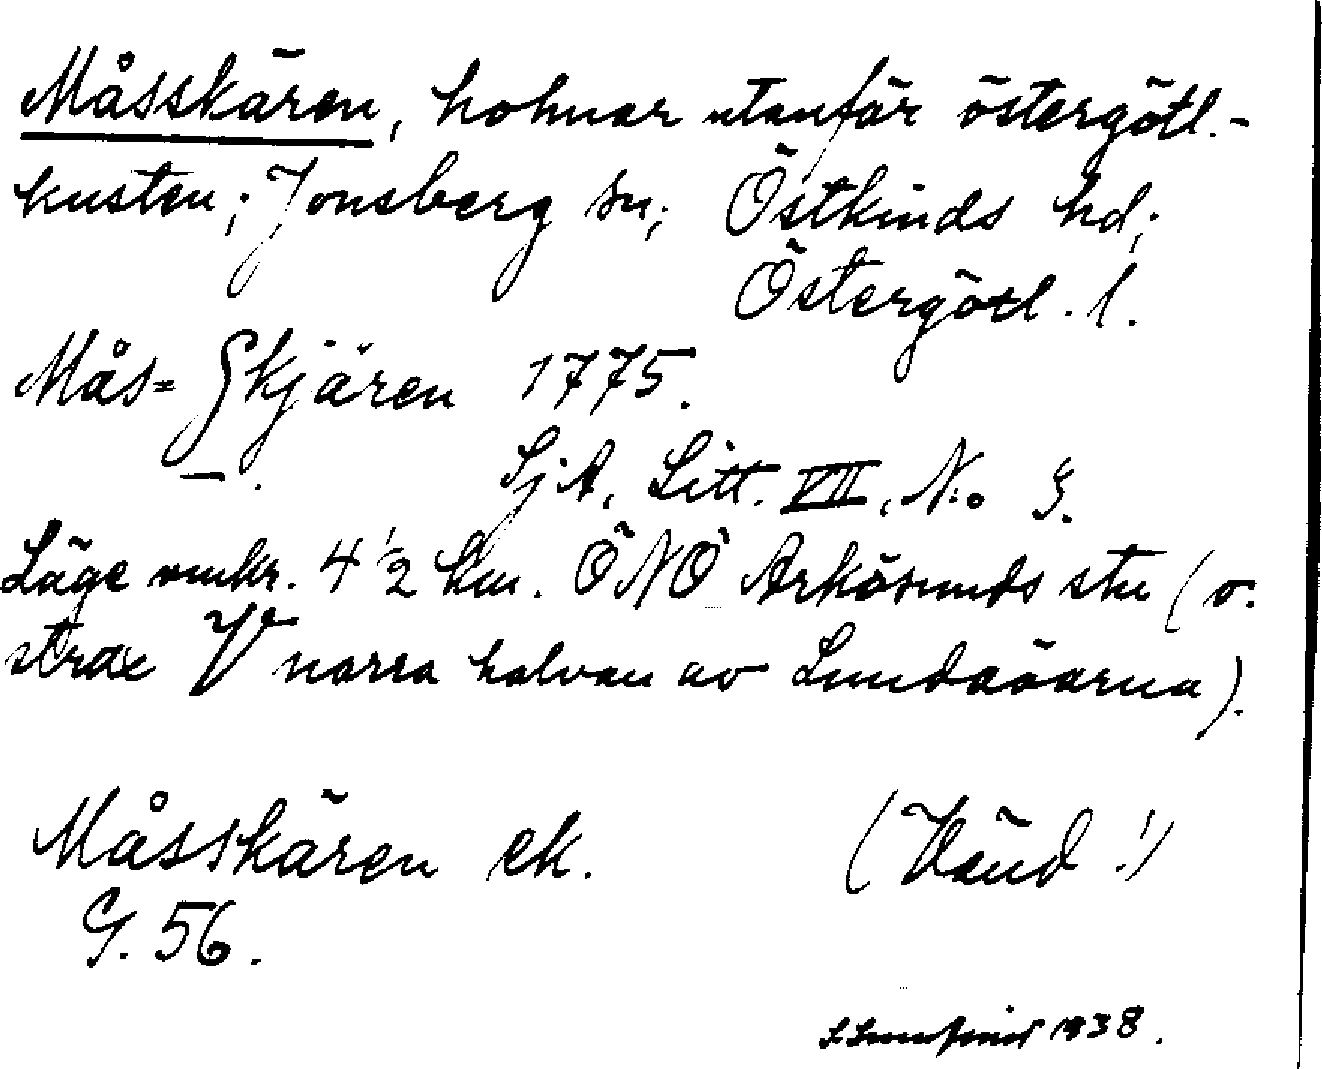 Måsskären, holmar utanför östergötl.-
kusten; Jonsberg sn; Östkinds hd;
Östergötl. l.
Mås= Skjären 1775.
SjA, Litt. VII, N:o 9.
Läge omkr. 4 1/2 km. ÖNÖ Arkösunds stn (o.
strax V norra halvan av Lundaöarna).
Måsskären ek. (Vänd!)
G. 56.
1938.